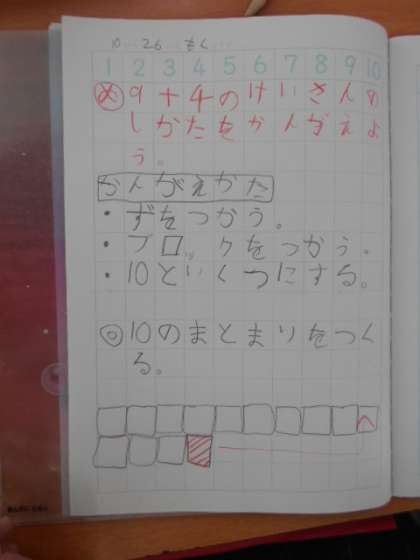 10 26 もく
1 2 3 4 5 6 7 8 9 10
め 9+4のけいさんの
しかたをかんがえよ
う。
かんがえかた
・ずをつかう。
・ブロックをつかう。
・10といくつにする。
◎10のまとまりをつく
る。